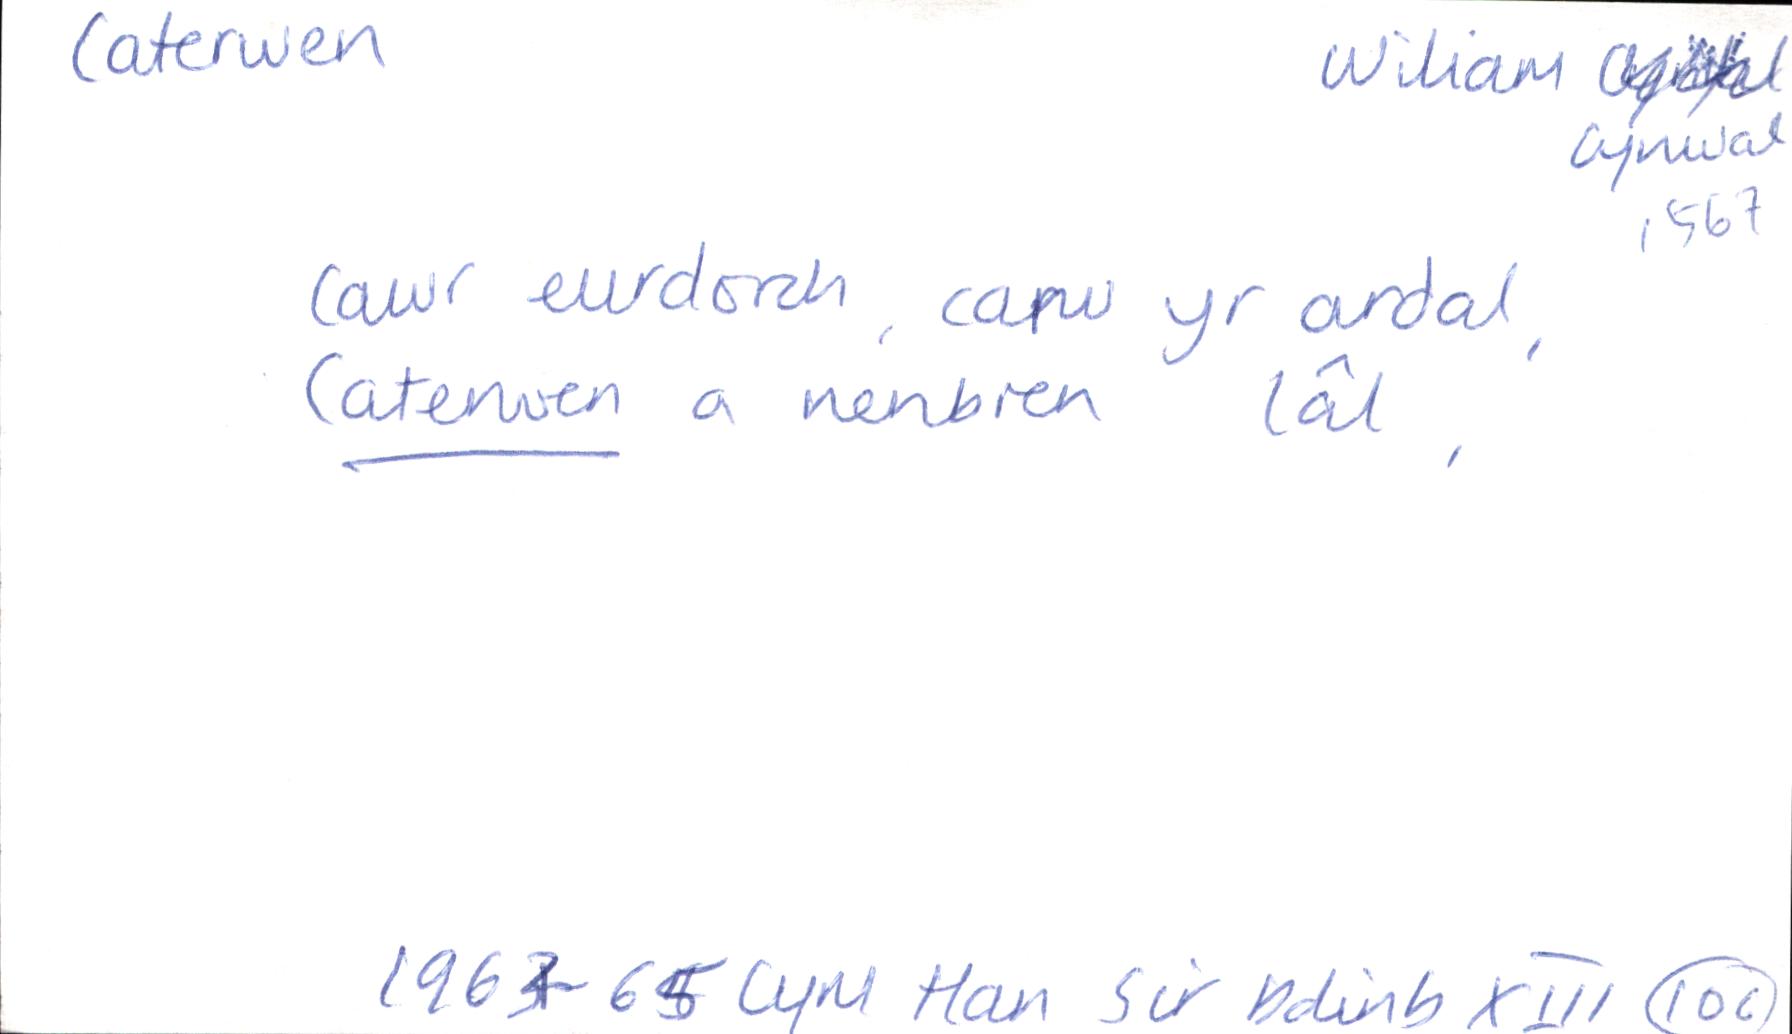 Caterwen
Wiliam
Cynwal
1567
Cawr eurdorch, carw yr ardal,
Caterwen a nenbren Iâl,
1964-65 Cym Han Sir Ddinb XIII